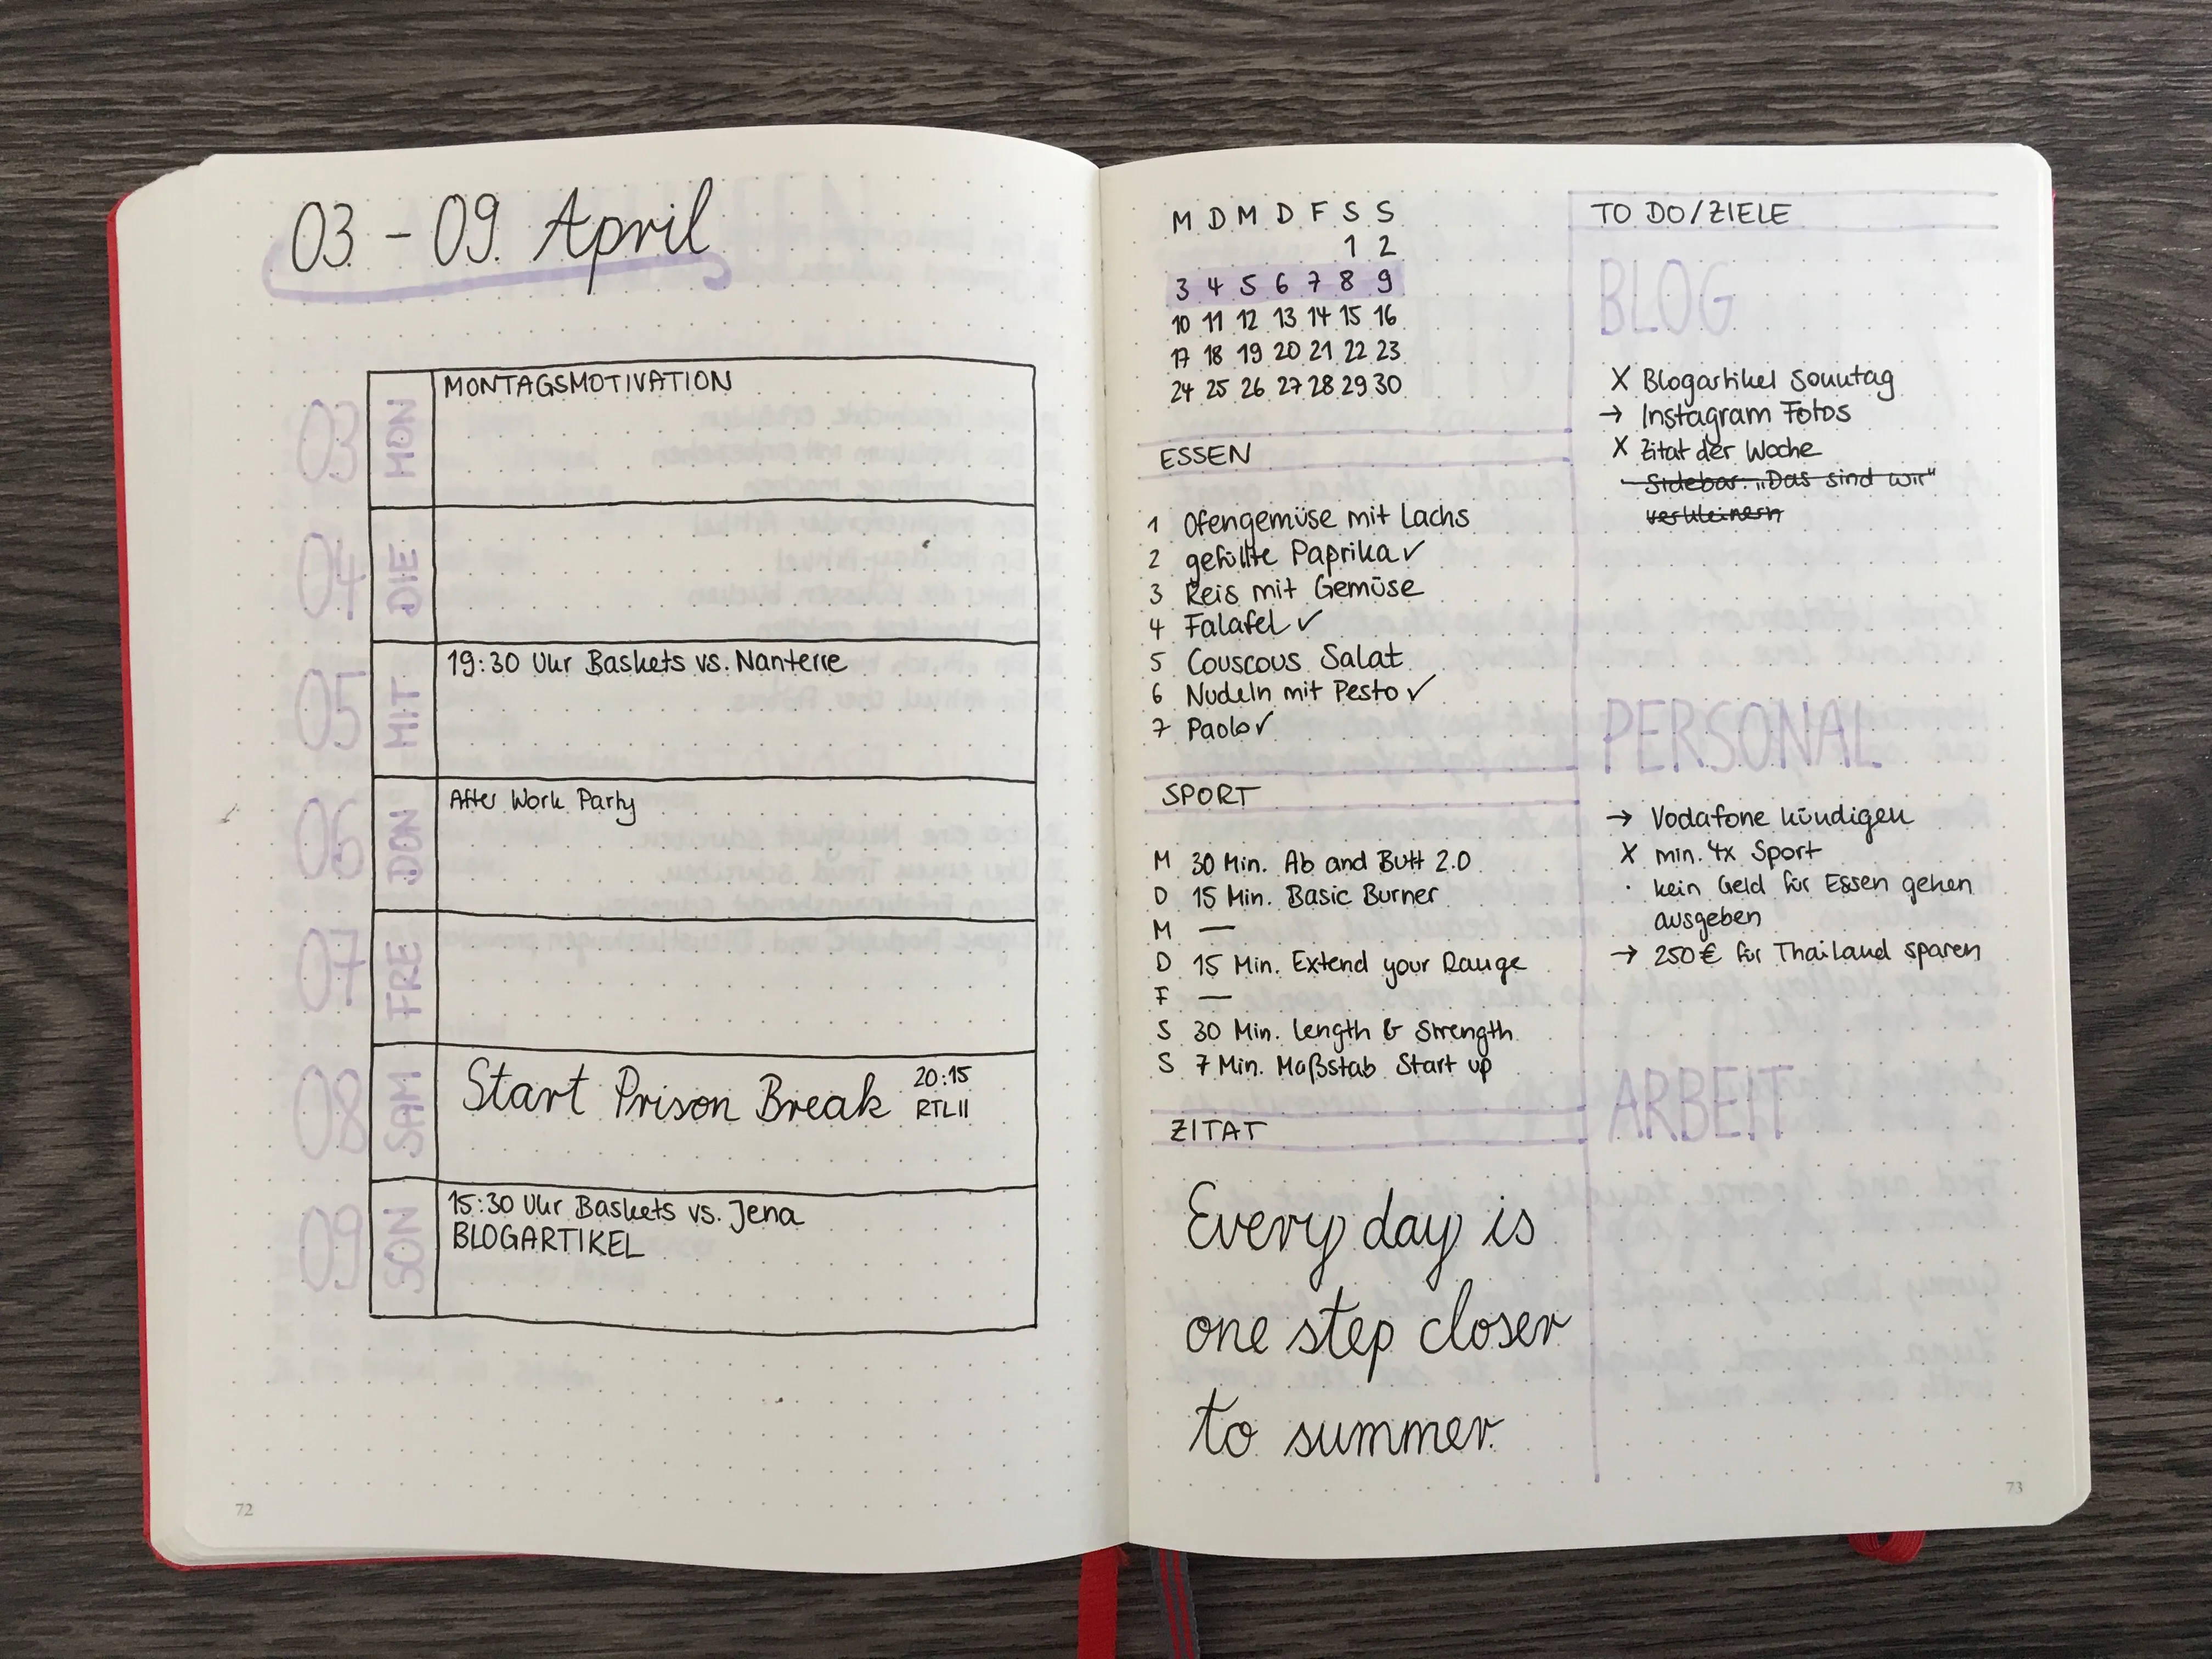 03. - 09. April
03 MON MONTAGSMOTIVATION
04 DIE
05 MIT 19:30 Uhr Baskets vs. Nanterre
06 DON After Work Party
07 FRE
08 SAM Start Prison Break 20:15
RTLII
09 SON 15:30 Uhr Baskets vs. Jena
BLOGARTIKEL
72
M D M D F S S
1 2
3 4 5 6 7 8 9
10 11 12 13 14 15 16
17 18 19 20 21 22 23
24 25 26 27 28 29 30
ESSEN
1 Ofengemüse mit Lachs
2 gefüllte Paprika ✓
3 Reis mit Gemüse
4 Falafel ✓
5 Couscous Salat
6 Nudeln mit Pesto ✓
7 Paolo ✓
SPORT
M 30 Min. Ab and Butt 2.0
D 15 Min. Basic Burner
M —
D 15 Min. Extend your Range
F —
S 30 Min. Length & Strength
S 7 Min. Maßstab Start up
ZITAT
Every day is
one step closer
to summer.
TO DO/ZIELE
BLOG
X Blogartikel Sonntag
→ Instagram Fotos
X Zitat der Woche
- Sidebar: „Das sind wir"
verkleinern
PERSONAL
→ Vodafone kündigen
X min. 4x Sport
· kein Geld für Essen gehen
ausgeben
→ 250€ für Thailand sparen
ARBEIT
73